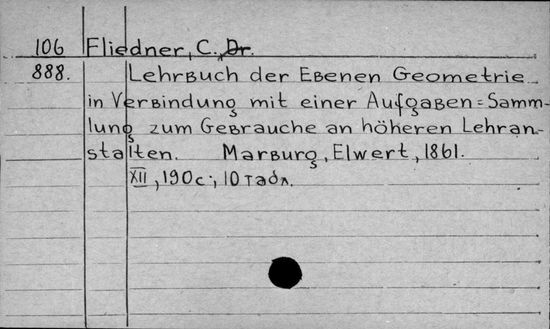 106 Fliedner, C. Dr.
888. Lehrbuch der Ebenen Geometrie
in Verbindung mit einer Aufgaben=Samm-
lung zum Gebrauche an höheren Lehran-
stalten. Marburg, Elwert, 1861.
XII, 190 с., 10 табл.